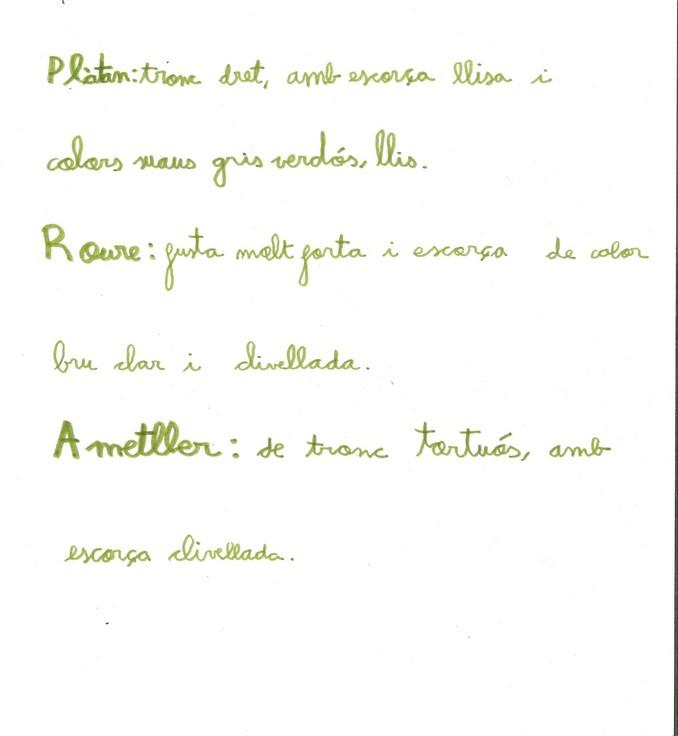 Plàtan: tronc dret, amb escorça llisa i
colors suaus gris verdós, llis.
Roure: fusta molt forta i escorça de color
bru clar i clivellada.
Ametller: de tronc tortuós, amb
escorça clivellada.